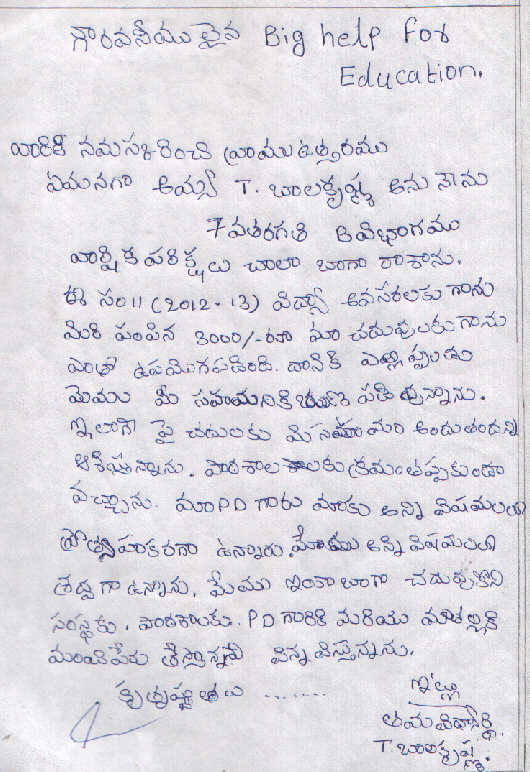 గౌరవనీయులైన Big help for
Education.
వారికి నమస్కరించి వ్రాయు ఉత్తరము
ఏమనగా అయ్యా T. బాలకృష్ణ అను నేను
7వతరగతి A విభాగము
వార్షిక పరిక్షలు చాలా బాగా రాశాను.
ఈ సం॥ (2012-13) విద్యా అవసరాలకు గాను
మీరు పంపిన 3000/-రూ మా చదువులకు గాను
ఎంతో ఉపయోగపడింది. దానికి ఎల్లప్పుడు
మేము మీ సహాయానికి పడి వున్నాను.
ఇలాగే పై చదులకు మీ సహాయం అందుతుందని
ఆశిస్తున్నాను. పాఠశాలకు క్రమం తప్పకుండా
వచ్చాను. మా PD గారు మాకు అన్ని విషయాలలో
ప్రోత్సాహకరంగా ఉన్నారు. మేము అన్ని విషయాలలో
శ్రద్ధగా ఉన్నాను. మేము ఇంకా బాగా చదువుకొని
సంస్థకు. పాఠశాలకు. PD గారికి మరియు మాతల్లికి
మంచిపేరు తెస్తానని విన్నవిస్తున్నను.
కృతజ్ఞతలు .......
ఇట్లు
తమ విద్యార్థి
T. బాలకృష్ణ.